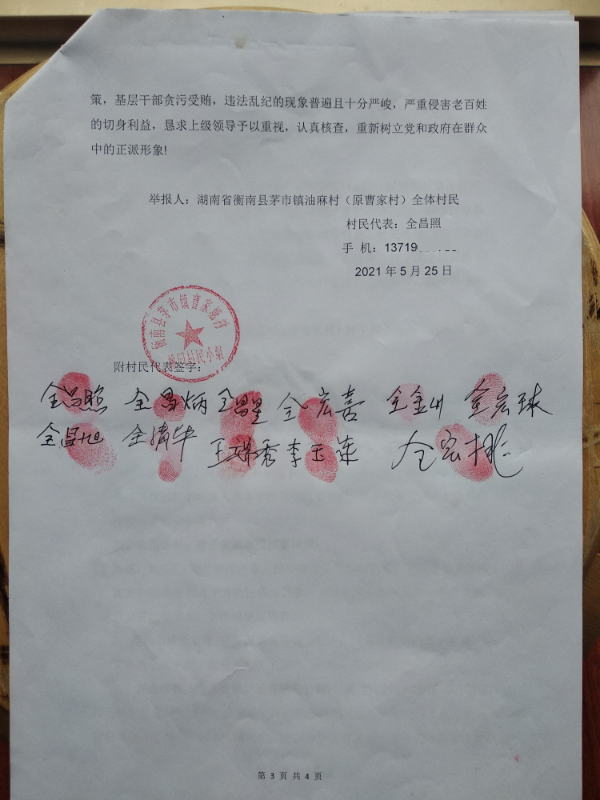 策，基层干部贪污受贿，违法乱纪的现象普遍且十分严峻，严重侵害老百姓
的切身利益，恳求上级领导予以重视，认真核查，重新树立党和政府在群众
中的正派形象!
举报人：湖南省衡南县茅市镇油麻村（原曹家村）全体村民
村民代表：全昌照
手 机：13719
2021 年 5 月 25 日
衡南县茅市镇曹家村 村民小组
附村民代表签字：
全昌照 全昌炳 全昌星 全宏喜 全金 全宏球
全昌旭 全清华 王珠秀 李玉莲 全宏桃
第 3 页 共 4 页